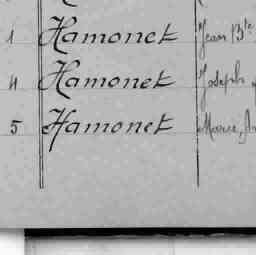 1 Hamonet Jean Bte
4 Hamonet Joseph
5 Hamonet Marie